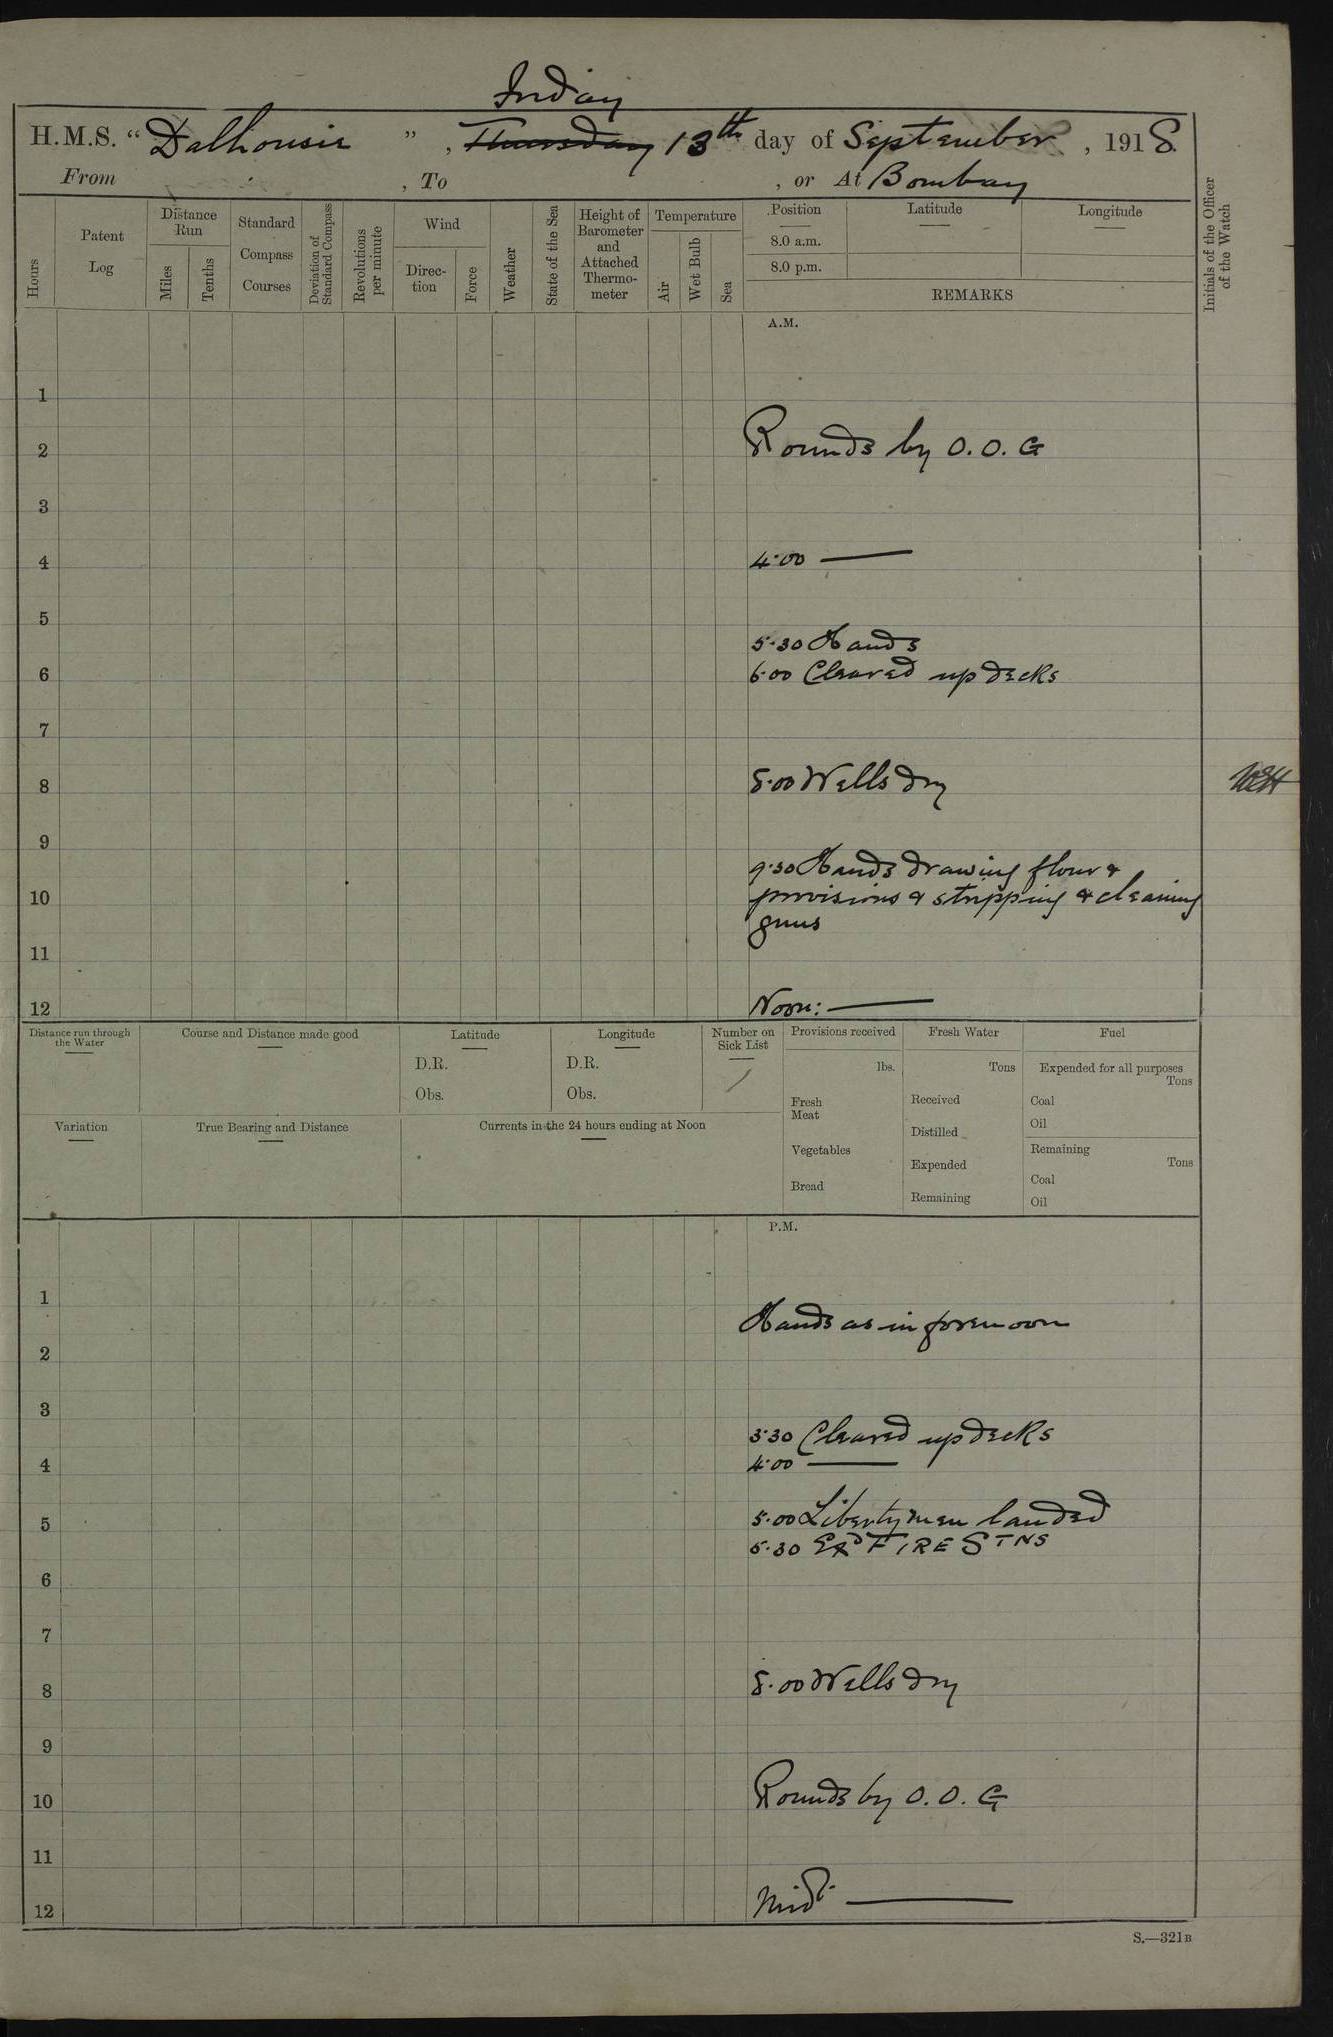 Friday
H.M.S. “Dalhousie”, Thursday 13th day of September, 1918.
From , To , or At Bombay
Hours
Patent Log
Distance Run
Miles
Tenths
Standard Compass Courses
Deviation of Standard Compass
Revolutions per minute
Wind
Direc-tion
Force
Weather
State of the Sea
Height of Barometer and Attached Thermo-meter
Temperature
Air
Wet Bulb
Sea
Position
Latitude
Longitude
8.0 a.m.
8.0 p.m.
REMARKS
Initials of the Officer of the Watch
A.M.
1
2 Rounds by O.O.G
3
4 4.00 ———
5
5.30 Hands
6 6.00 Cleared up decks
7
8 8.00 Wells dry
9
9.30 Hands drawing flour &
10 provisions & stripping & cleaning
guns
11
12 Noon: ———
Distance run through the Water
Course and Distance made good
Latitude
D.R.
Obs.
Longitude
D.R.
Obs.
Number on Sick List
/
Provisions received
lbs.
Fresh Meat
Vegetables
Bread
Fresh Water
Tons
Received
Distilled
Expended
Remaining
Fuel
Expended for all purposes
Tons
Coal
Oil
Remaining
Tons
Coal
Oil
Variation
True Bearing and Distance
Currents in the 24 hours ending at Noon
P.M.
1
Hands as in forenoon
2
3
3.30 Cleared up decks
4 4.00 ———
5 5.00 Liberty men landed
5.30 Exd FIRE STNS
6
7
8 8.00 Wells dry
9
10 Rounds by O.O.G
11
12 Midt. ———
S.—321B